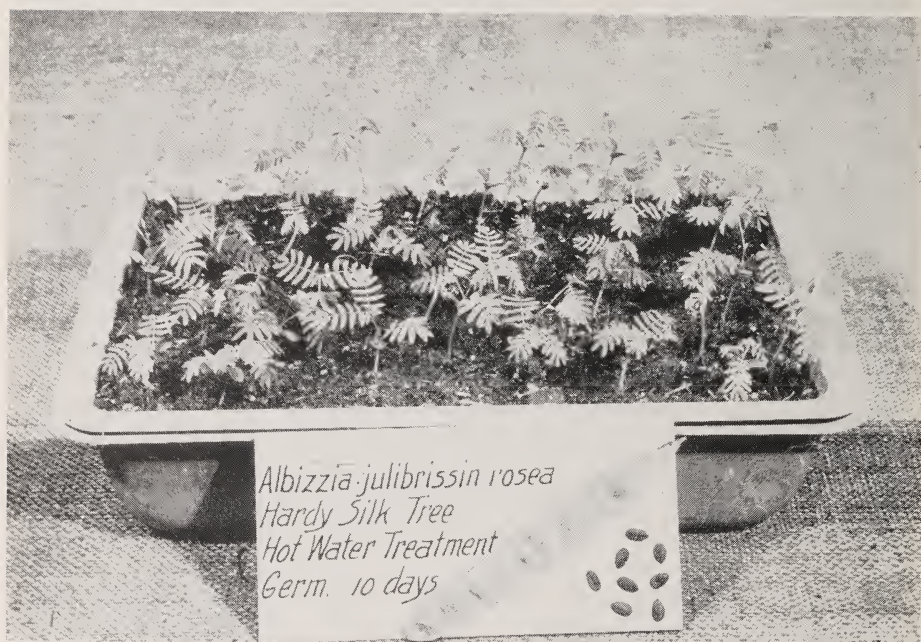 Albizzia julibrissin rosea
Hardy Silk Tree
Hot Water Treatment
Germ. 10 days